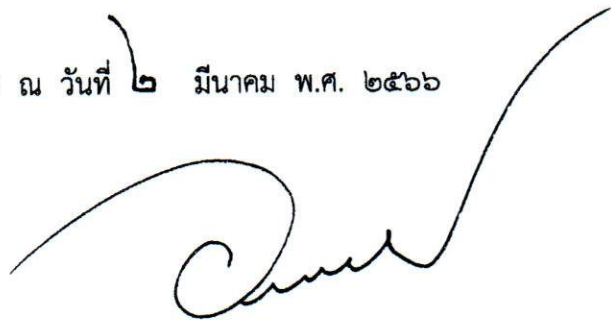 ณ วันที่ ๒ มีนาคม พ.ศ. ๒๕๖๖